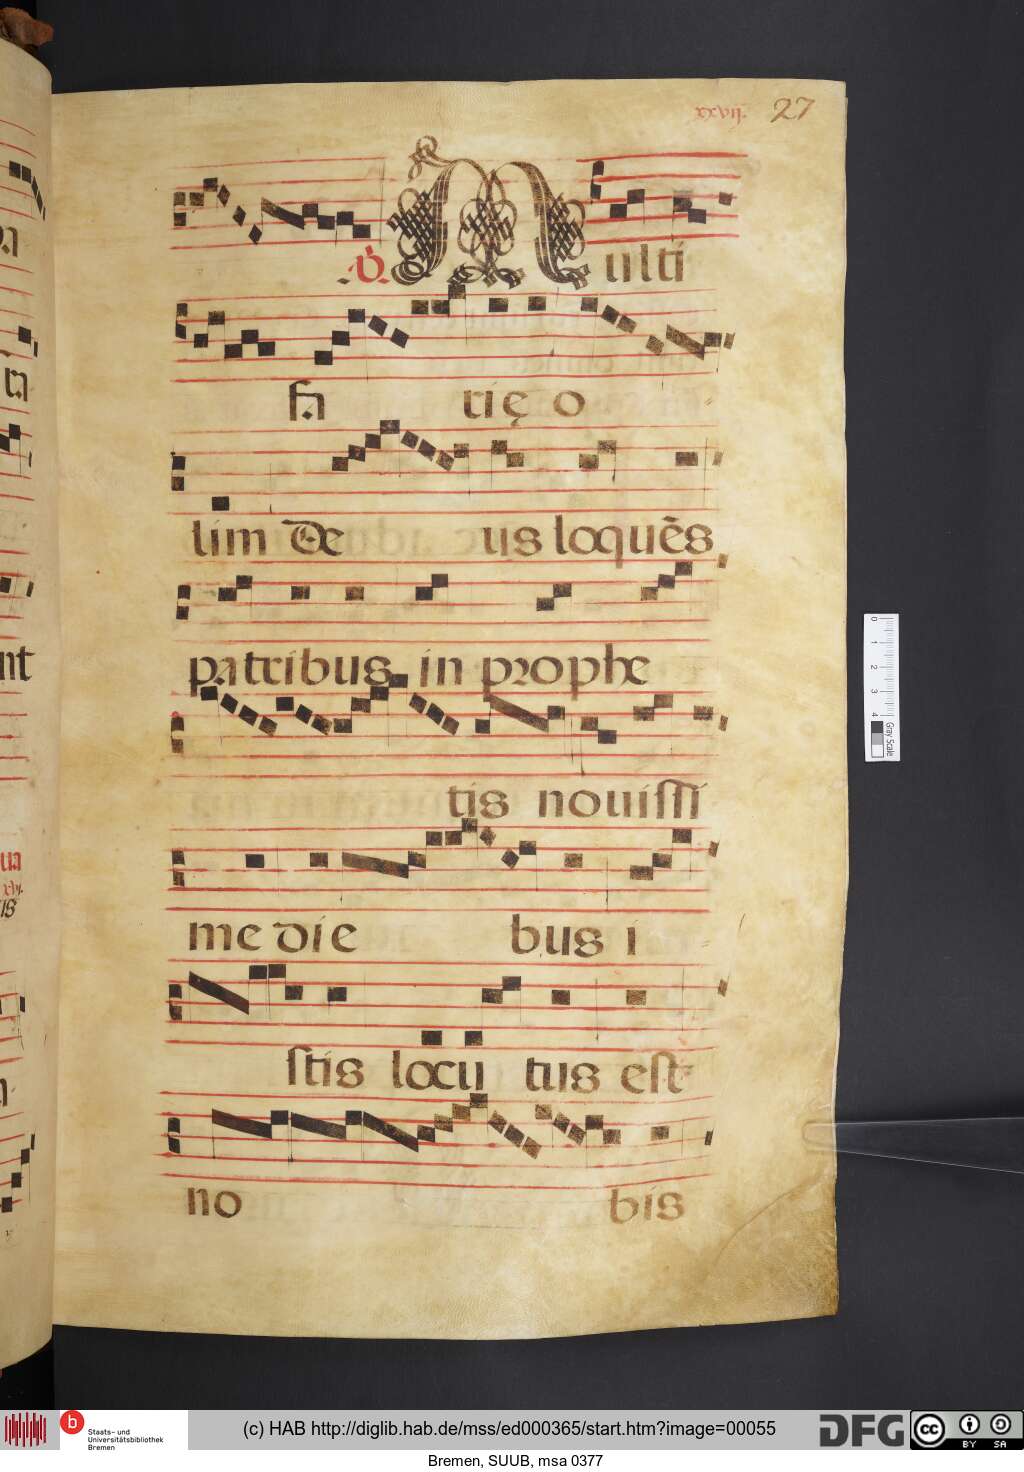 xxvij. 27
℟ Multi
fa rię o
lim De us loquēs
patribus in prophe
tis nouissi
me die bus i
stis locu tus est
no bis
nt
0 1 2 3 4
Gray Scale
b Staats- und Universitätsbibliothek Bremen
(c) HAB http://diglib.hab.de/mss/ed000365/start.htm?image=00055
DFG
cc BY SA
Bremen, SUUB, msa 0377